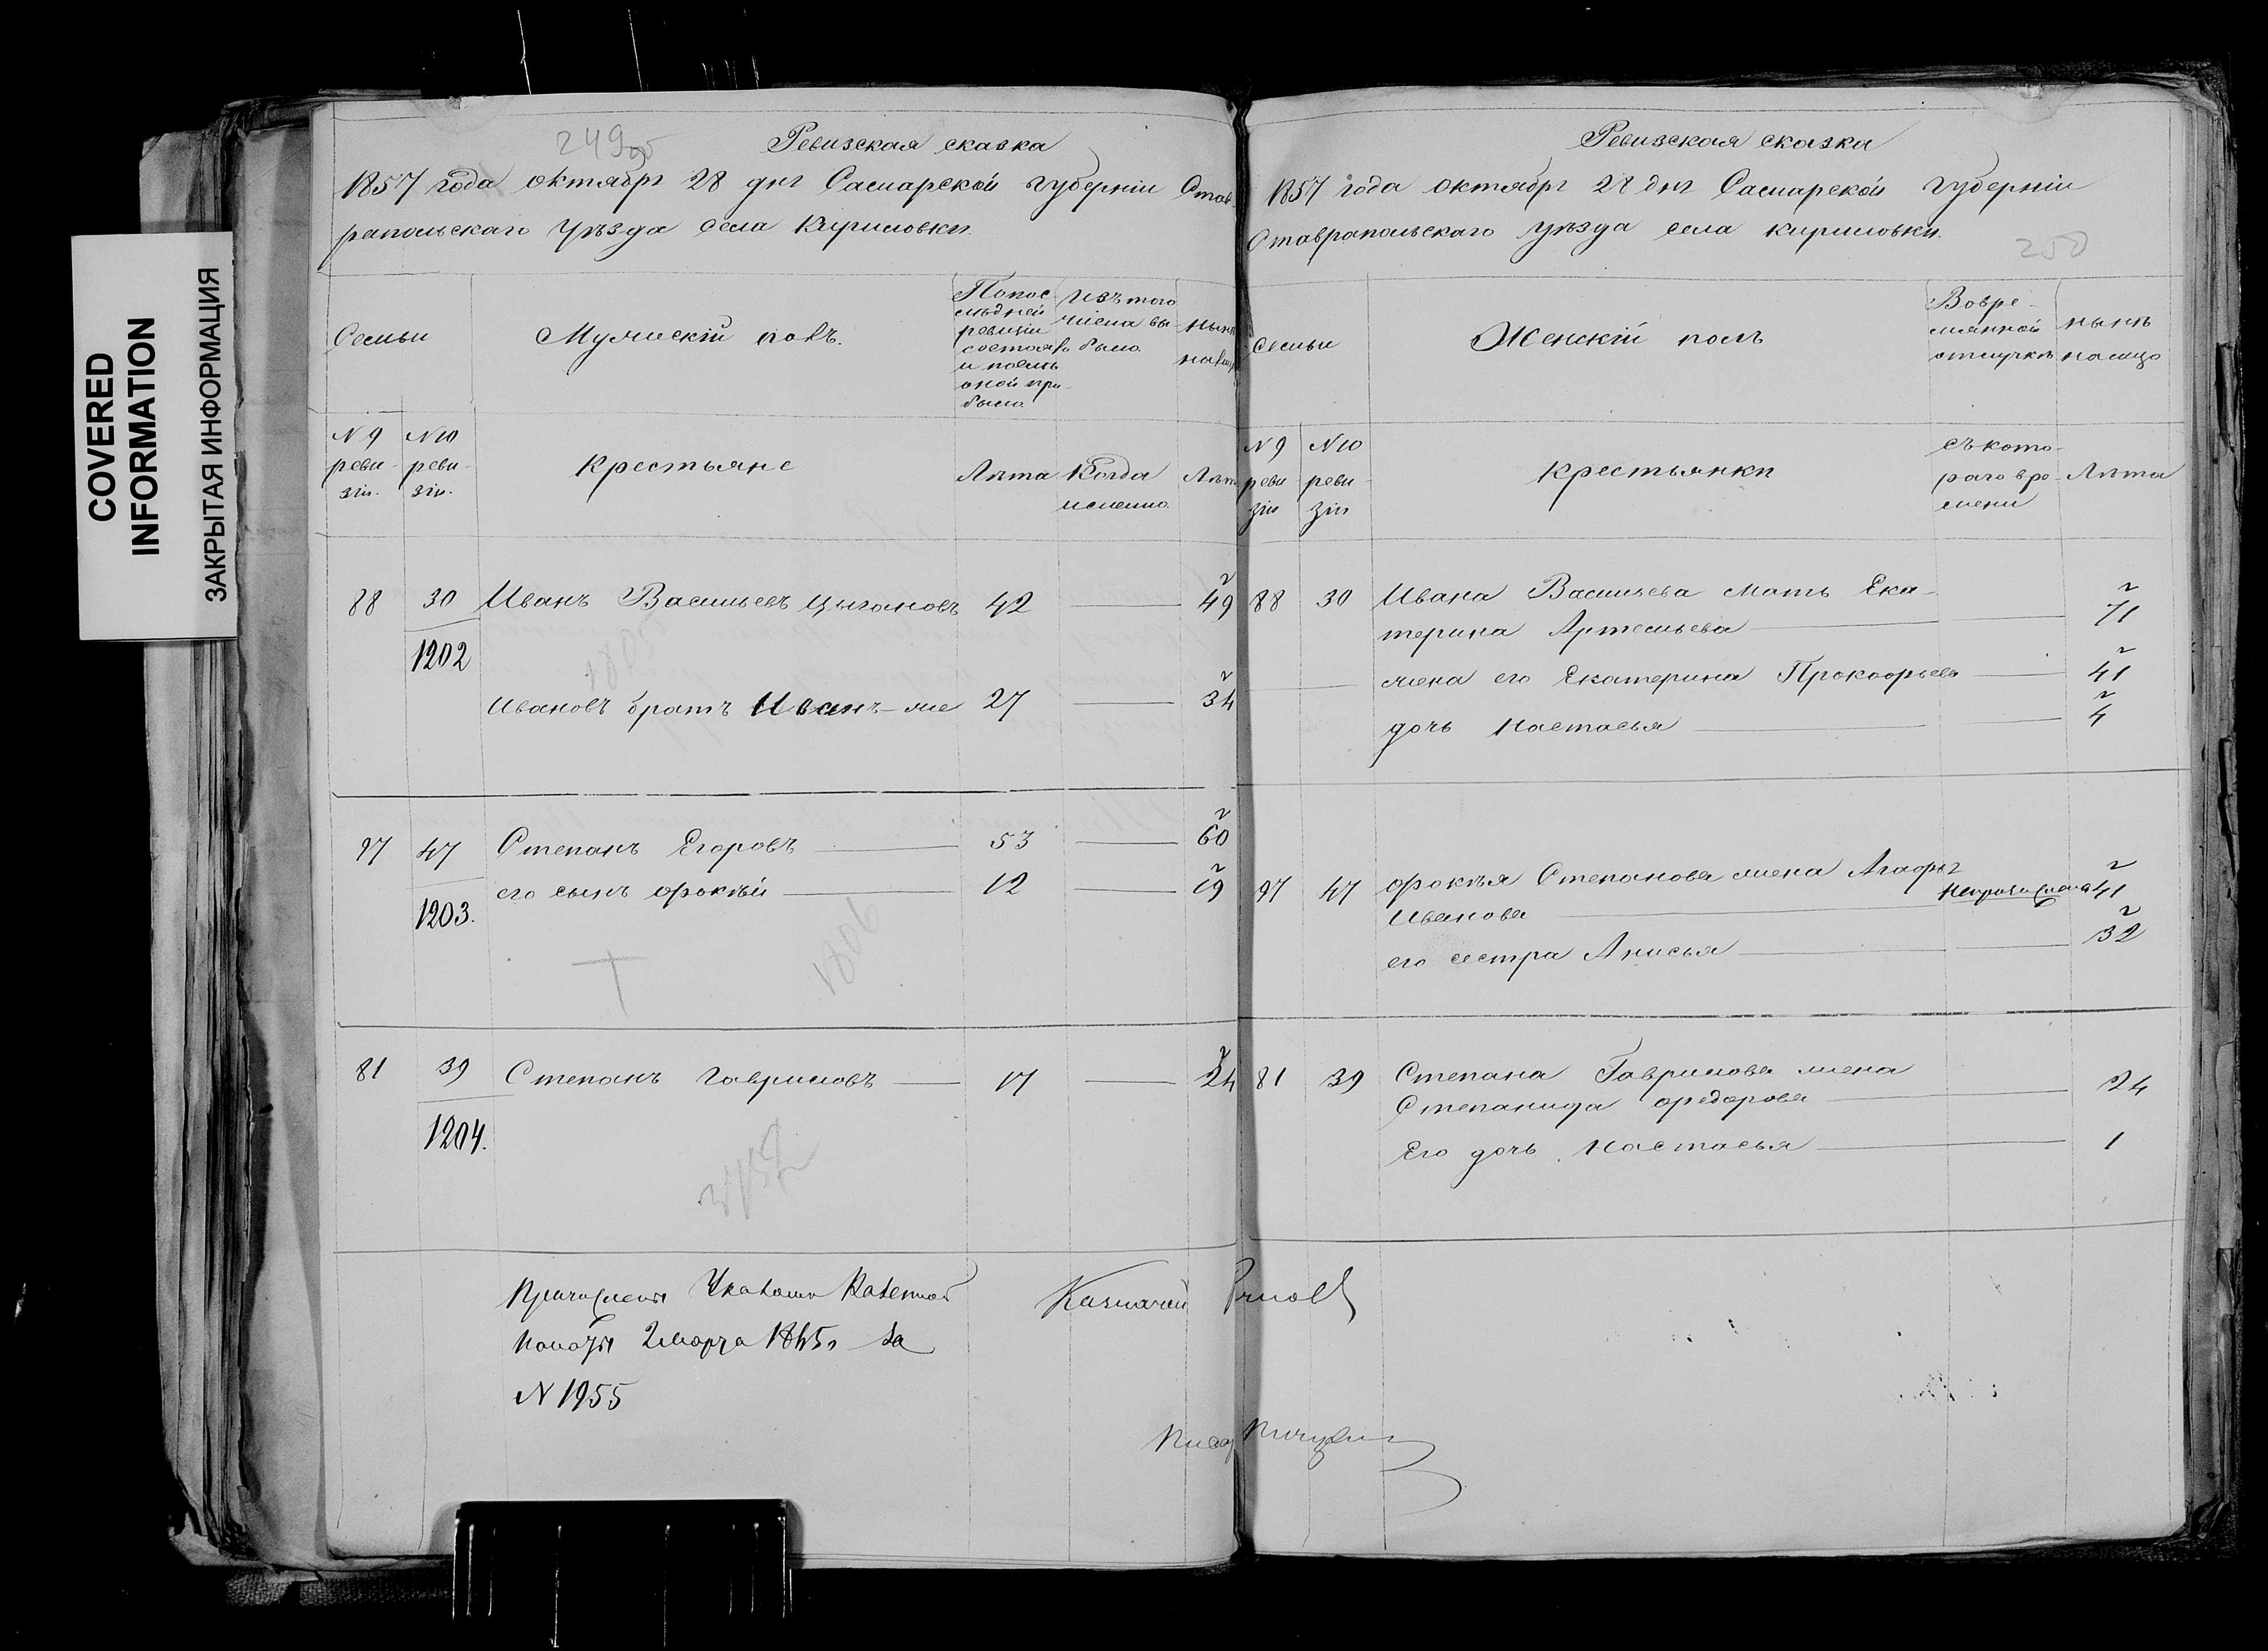 COVERED
INFORMATION
ЗАКРЫТАЯ ИНФОРМАЦИЯ
249об
Ревизская сказка
1857 года октября 28 дня Самарской губерніи Став-
рапольскаго уѣзда села Кириловки
Семьи
Мужескій полъ.
Попос-
лѣдней
ревизіи
состояло
и послѣ
оной при-
было
Изъ того
числа вы-
было
нынѣ
на
N 9
реви-
зіи.
N 10
реви-
зіи.
Крестьяне
Лѣта
Когда
именно
Лѣт
88 30 Иванъ Васильевъ Цыгановъ 42 49
1202
1805
Ивановъ братъ Иванъ-же 27 34
97 47 Степанъ Егоровъ 53 60
его сынъ Фокѣй 12 19
1203.
1806
81 39 Степанъ Гавриловъ 17 24
1204.
Причислены Указомъ Казенной
Палаты 2 Марта 1845 г за
N 1955
Казначей
Писарь
Ревизская сказка
1857 года октября 28 дня Самарской губерніи
Ставрапольскаго уѣзда села Кириловки.
250
Семьи
Женскій полъ
Вовре-
мянной
отлучкѣ
нынѣ
налицо
N 9
реви
зіи
N 10
реви
зіи
Крестьянки
съ кото-
раго вре-
мени
Лѣта
88 30 Ивана Васильева мать Ека-
терина Артемьева 71
жена его Екатерина Прокофьева 41
дочь Настасья 4
97 47 Фокѣя Степанова жена Агафья
Иванова Непричислена 41
его сестра Анисья 32
81 39 Степана Гаврилова жена
Степанида Федорова 24
Его дочь Настасья 1